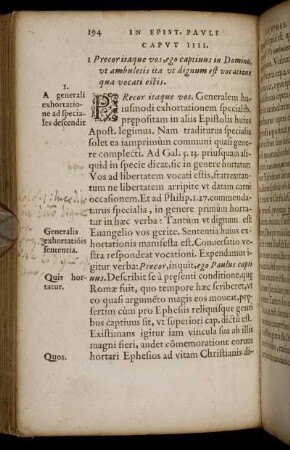 194 IN EPIST. PAVLI
CAPVT IIII.
1 Precor itaque vos, ego captiuus in Domino,
vt ambuletis ita vt dignum est vocatione
qua vocati estis.
1.
A generali
exhortatio-
ne ad specia-
les descendit
PRecor itaque vos. Generalem hu-
iusmodi exhortationem specialib.
præpositam in aliis Epistolis huius
Apost. legimus. Nam traditurus specialia
solet ea iamprimùm communi quali gene-
re complecti. Ad Gal. 5. 13. priusquam ali-
quid in specie dicat, sic in genere hortatur
Vos ad libertatem vocati estis, fratres: tan-
tum ne libertatem arripite vt datam carni
occasionem. Et ad Philip. 1. 27. comendatu-
rus specialia, in genere primum horta-
tur in hæc verba: Tantùm vt dignum est
Generalis
exhortatiõis
sententia.
Euangelio vos gerite. Sententia huius ex-
hortationis manifesta est. Conuersatio ve-
stra respondeat vocationi. Expendamus i-
gitur verba: Precor, inquit, ego Paulus capti
Quis hor-
tatur.
uus. Describit se à presenti conditione, quæ
Romæ fuit, quo tempore hæc scriberet, vt
eo quasi argumẽto magis eos moueat, præ-
sertim cùm pro Ephesiis reliquisque genti-
bus captiuus sit, vt superiori cap. dictũ est.
Existimans igitur iam vincula sua ab illis
magni fieri, audet cõmemoratione eorum
Quos.
hortari Ephesios ad vitam Christianis di-